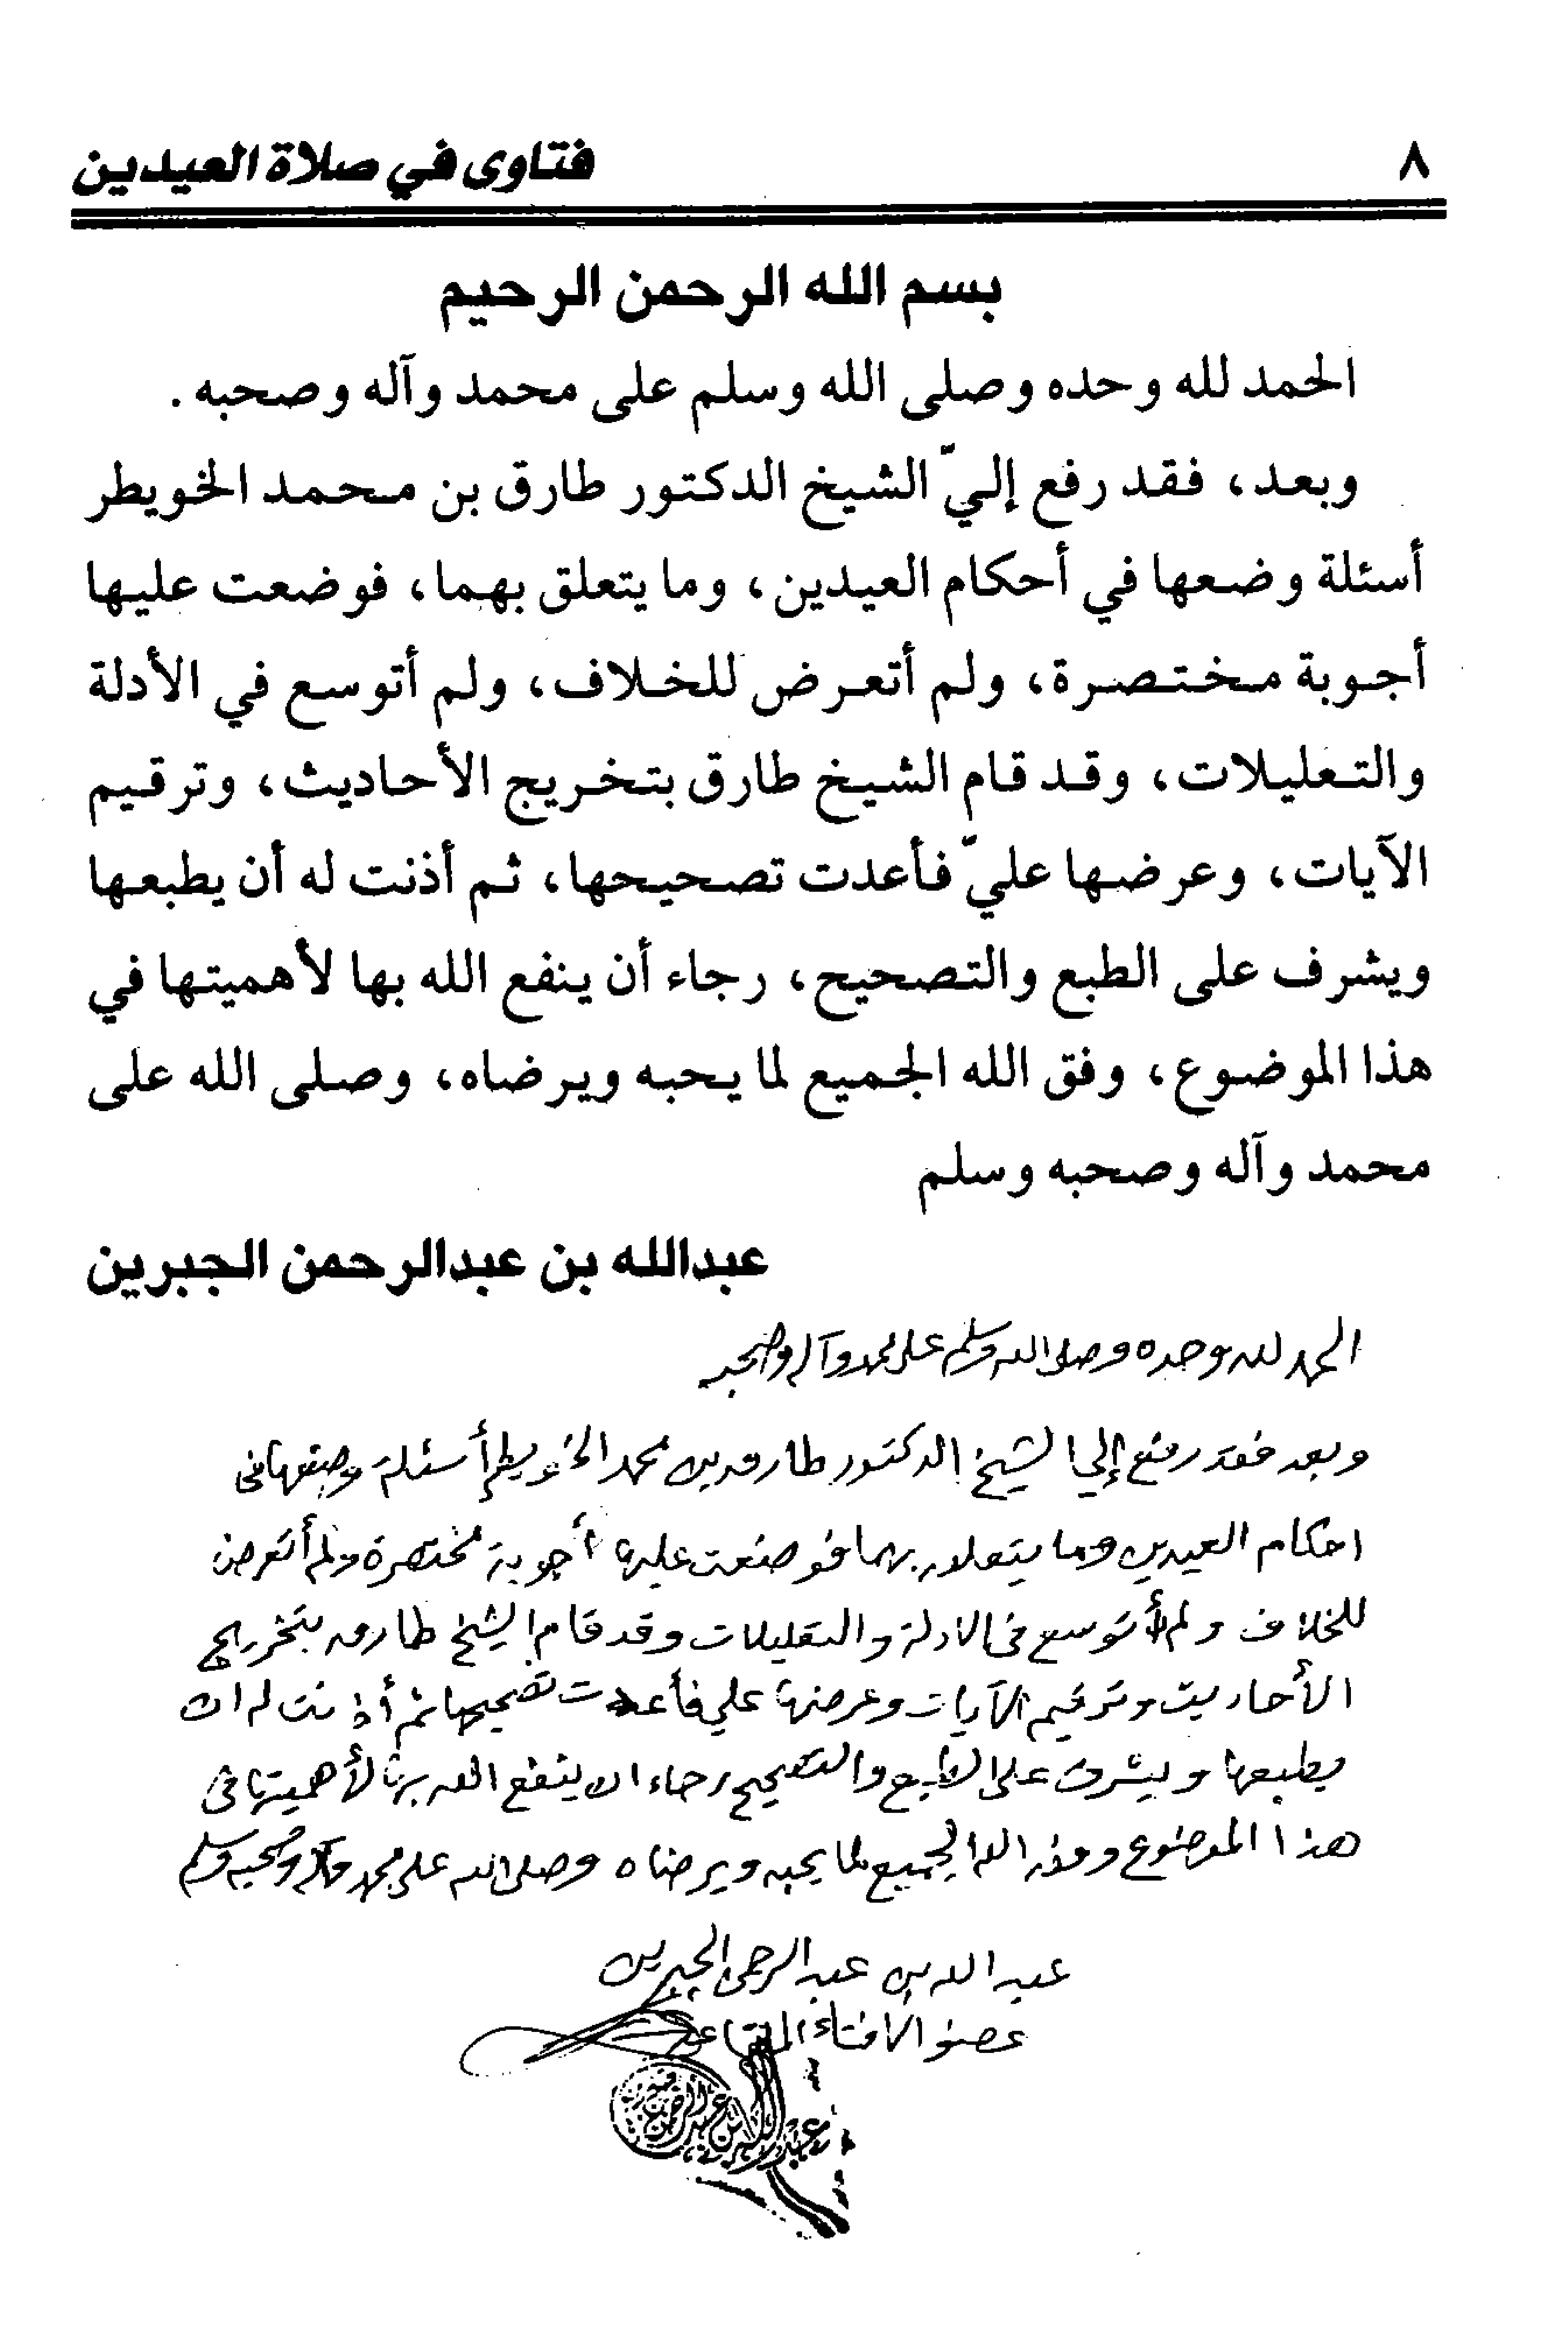 ٨
فتاوى في صلاة العيدين
بسم الله الرحمن الرحيم
الحمد لله وحده وصلى الله وسلم على محمد وآله وصحبه .
وبعد، فقد رفع إليّ الشيخ الدكتور طارق بن محمد الخويطر
أسئلة وضعها في أحكام العيدين، وما يتعلق بهما، فوضعت عليها
أجوبة مختصرة، ولم أتعرض للخلاف، ولم أتوسع في الأدلة
والتعليلات، وقد قام الشيخ طارق بتخريج الأحاديث، وترقيم
الآيات، وعرضها عليّ فأعدت تصحيحها، ثم أذنت له أن يطبعها
ويشرف على الطبع والتصحيح، رجاء أن ينفع الله بها لأهميتها في
هذا الموضوع، وفق الله الجميع لما يحبه ويرضاه، وصلى الله على
محمد وآله وصحبه وسلم
عبدالله بن عبدالرحمن الجبرين
الحمد لله وحده وصلى الله وسلم على محمد وآله وصحبه
وبعد فقد رفع إلي الشيخ الدكتور طارق بن محمد الخويطر أسئلة وضعها في
احكام العيدين وما يتعلق بهما فوضعت عليها أجوبة مختصرة ولم أتعرض
للخلاف ولم أتوسع في الادلة والتعليلات وقد قام الشيخ طارق بتخريج
الأحاديث وترقيم الآيات وعرضها علي فأعدت تصحيحها ثم أذنت له ان
يطبعها ويشرف على الطبع والتصحيح رجاء ان ينفع الله بها لأهميتها في
هذا الموضوع وفق الله الجميع لما يحبه ويرضاه وصلى الله على محمد وآله وصحبه وسلم
عبد الله بن عبد الرحمن الجبرين
عضو الافتاء المتقاعد